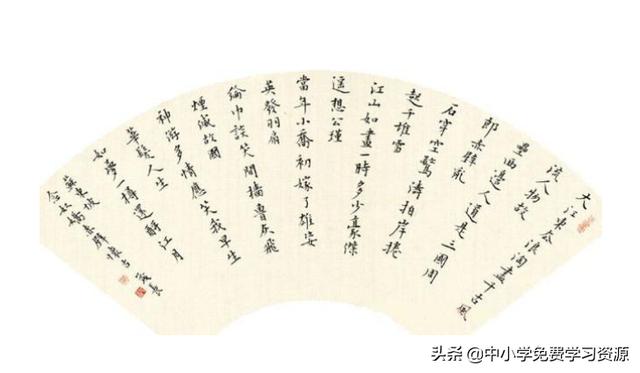 大江東去浪淘盡千古風
流人物故
壘西邊人道是三國周
郎赤壁亂
石穿空驚濤拍岸捲
起千堆雪
江山如畫一時多少豪傑
遥想公瑾
當年小喬初嫁了雄姿
英發羽扇
綸巾談笑間檣魯灰飛
煙滅故國
神游多情應笑我早生
華髮人生
如夢一樽還酹江月
蘇東坡
念奴嬌赤壁懷古
头条 @中小学免费学习资源